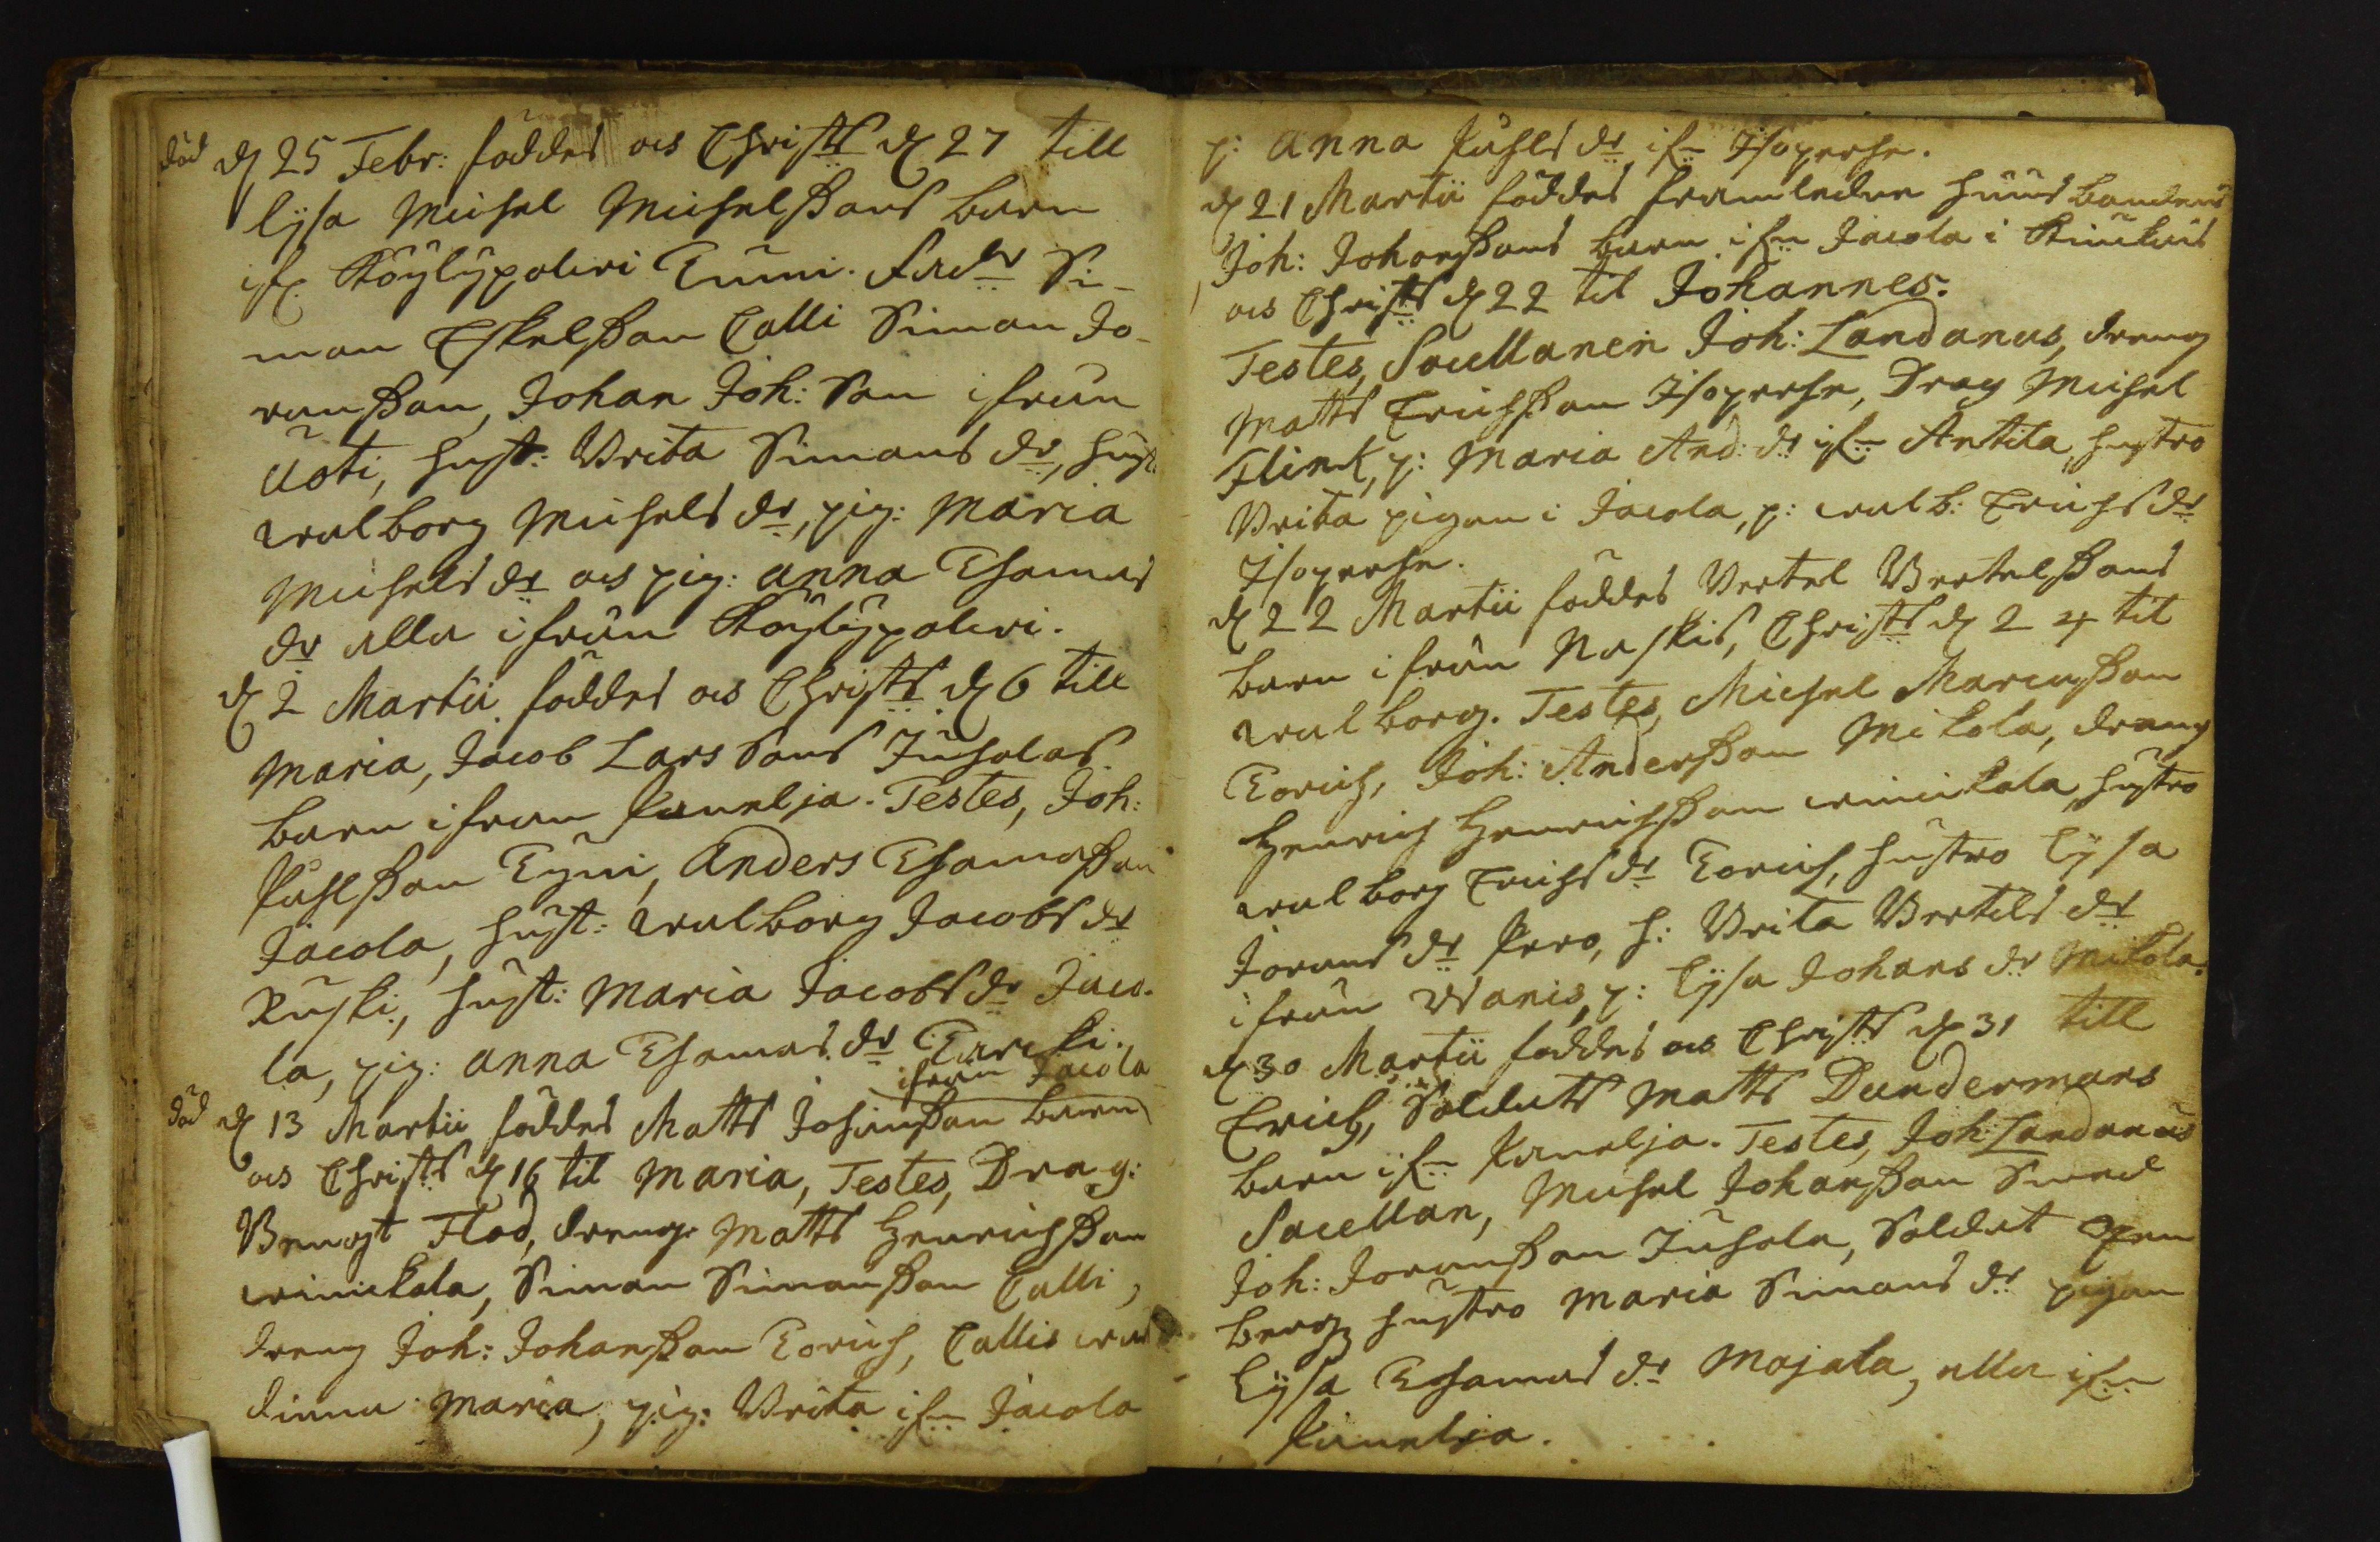 död d 25 Febr: föddes och Christs d 27 till
Lÿsa Michel Michelßons barn
ifr. Köÿlÿpolwi Tumi. Fadr Si-
mon Eskelßon Calli Simon Jo-
ranßon, Johan Joh: Son ifrån
Uoti, hust: Brita Simons dr, hust
walborg Michels dr, pig: Maria
Michels dr och pig: Anna Thomas
dr alla ifrån Köÿlÿpolwi.
d 2 Martii föddes och Christs d 6 till
Maria, Jacob Lars Sons Jusolas
barn ifrån Kaunelja. Testes, Joh:
Påhlßon Tÿni, Anders Thomaßon
Jacola, hust: walborg Jacobs dr
Ruski, hust: Maria Jacobs dr Jaco-
la, pig: Anna Thomas dr
ifrån Jacola
död d 13 Martii föddes Matts Johanßon barn
och Christs d 16 til Maria, Testes, Drag:
Bengt Flod, dreng Matts Henrichßon
winickala, Simon Simonßon Calli,
dreng Joh: Johanßon Eorich, Callis wär
dinna Maria, pig: Brita ifr Jacola
p: Anna Påhls dr ifr Isoperhe.
d 21 Martii föddes framledne husbondens
Joh: Johanßons barn ifr Jacola i
och Christs d 22 til Johannes.
Testes, Sacellanen Joh: Landanus, dreng
Matts Erichßon Isoperhe, Drag Michel
Flink, p: Maria And: dr ifr Antila, hustro
Brita pigan i Jacola, p: walb: Erichs dr
Isoperhe.
d 22 Martii föddes Bertel Bertelßons
barn ifrån Raskis, Christs d 24 til
walborg. Testes, Michel Marcußon
Eorich, Joh: Anderßon Mikola, dreng
Henrich Henrichßon winickala, hustro
walborg Erichs dr Eorich, hustro Lÿsa
Jorans dr Pero, h: Brita Bertils dr
ifrån Wanis, p: Lÿsa Johans dr Mikola.
d 30 Martii föddes och Christs d 31 till
Erich, Soldats Matts Dundermans
barn ifr Kaunelja. Testes, Joh: Landanus
Sacellan, Michel Johanßon Smed
Joh: Joranßon Jusola, Soldat
berg, hustro Maria Simons dr pigan
Lÿsa Thomas dr Mojala, alla ifr
Kaunelja.